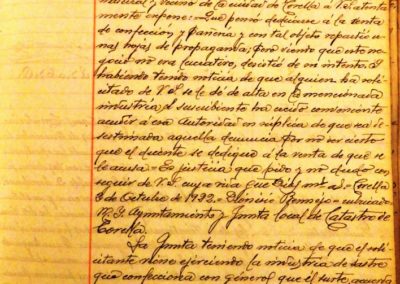 natural y vecino de la ciudad de Corella a V.S. atenta
mente expone: Que pensó dedicarse á la venta
de confeccion y pañeria y con tal objeto repartió u
nas hojas de propaganda; pero viendo que este ne
gocio no era lucrativo, desistió de su intento. Y
habiendo tenido noticia de que alguien ha soli
citado de V.S. se le dé de alta en la mencionada
industria el suscribiente ha creido conveniente
acudir á esa Autoridad en súplica de que sea de
sestimada aquella denuncia por no ser cierto
que el ducente se dedique á la venta de que se
le acusa = Es justicia que pido y no dudo con
seguir de V.S. cuya vida gue Dios ms as = Corella
6 de Octubre de 1922 = Dionisio Bermejo = rubricado
M. Y. Ayuntamiento y Junta local de Catastro de
Corella.
La Junta teniendo noticia de que el soli
citante viene ejerciendo la industria de sastre
que confecciona con género que él surte, acuerda